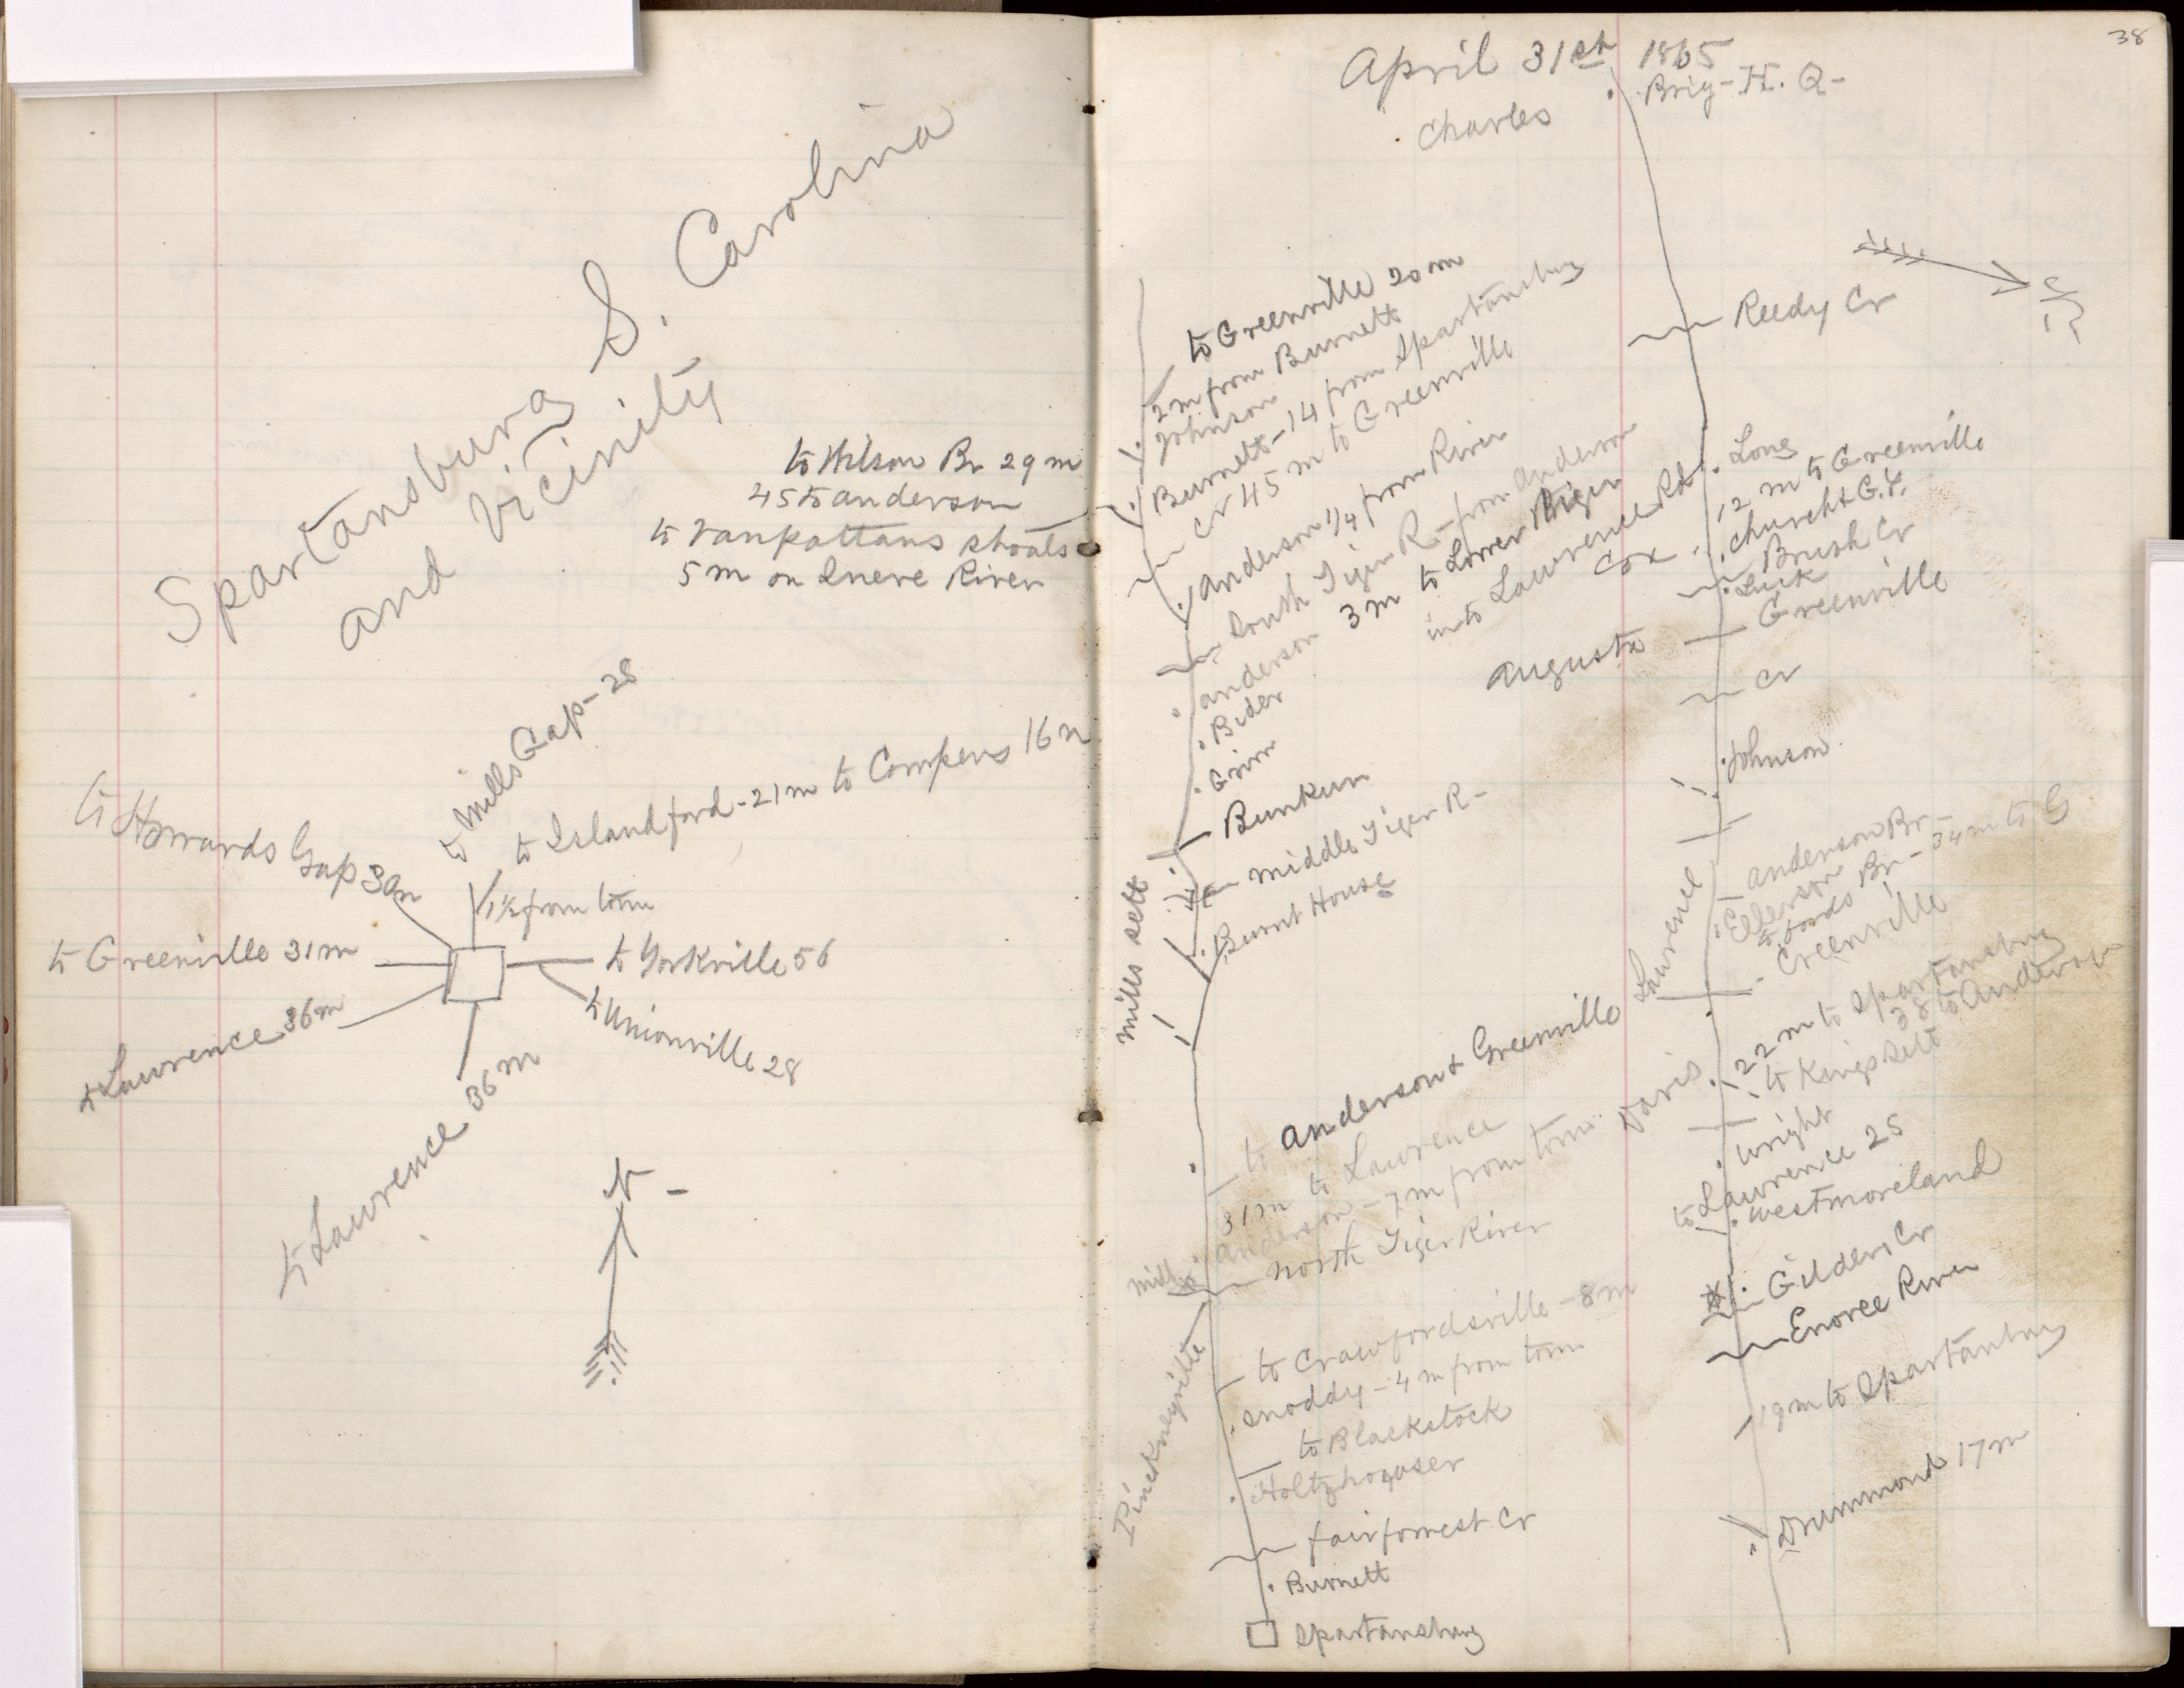 Spartansburg S. Carolina
and Vicinity
to Wilson Br 29 m
45 to anderson
to Vanpattans shoals
5 m on Enere River
to Mills Gap - 28
to Islandford - 21 m to Compens 16 m
to Howards Gap 30m
1½ from town
to Greenville 31 m
to Yorkville 56
to Unionville 28
to Lawrence 36m
to Lawrence 36 m
N -
38
April 31st 1865
Brig - H. Q -
Charles
N
Reedy Cr
to Greenville 20 m
2 m from Burnetts
Johnson
Burnetts - 14 from Spartansburg
Cr 45 m to Greenville
anderson 1/4 from River
South Tiger R - from anderson
anderson 3 m to Lower Tiger
Bider
into Lawrence Rd
Cox
Long
12 m to Greenville
Church & G. Y.
Brush Cr
Luck
Greenville
augusta
Cr
Johnson
Bunkum
middle Tiger R -
mills sett
Burnt House
anderson Br -
Elerson
to fords Br - 34 m to G
Greenville
Lawrence
22 m to Spartansburg
38 to Anderson
to Kings sett
Davis
wright
to Lawrence 25
westmoreland
Gilders Cr
Enoree River
19 m to Spartansburg
Drummond 17 m
to anderson & Greenville
31 m to Lawrence
anderson - 7 m from town
north Tiger River
mill
to Crawfordsville - 8 m
Snoddy - 4 m from town
to Blackstock
Pinckneyville
fairforrest Cr
Burnett
Spartansburg